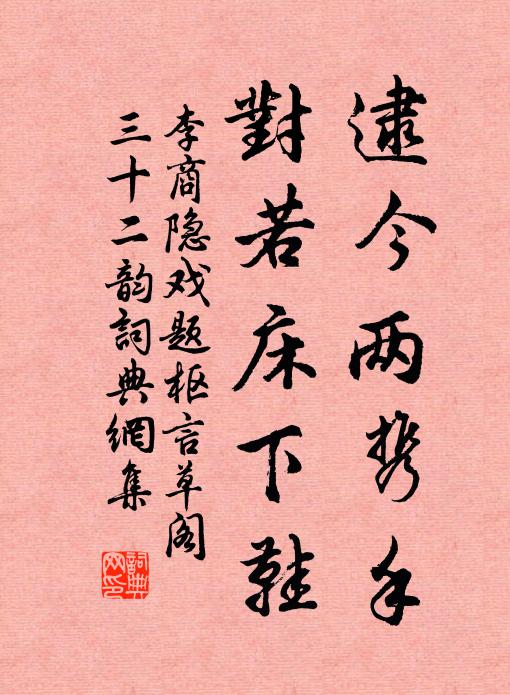 逮今两携手
對若床下鞋
李商隐戏题枢言草阁
三十二韵詞典網集
詞典网印